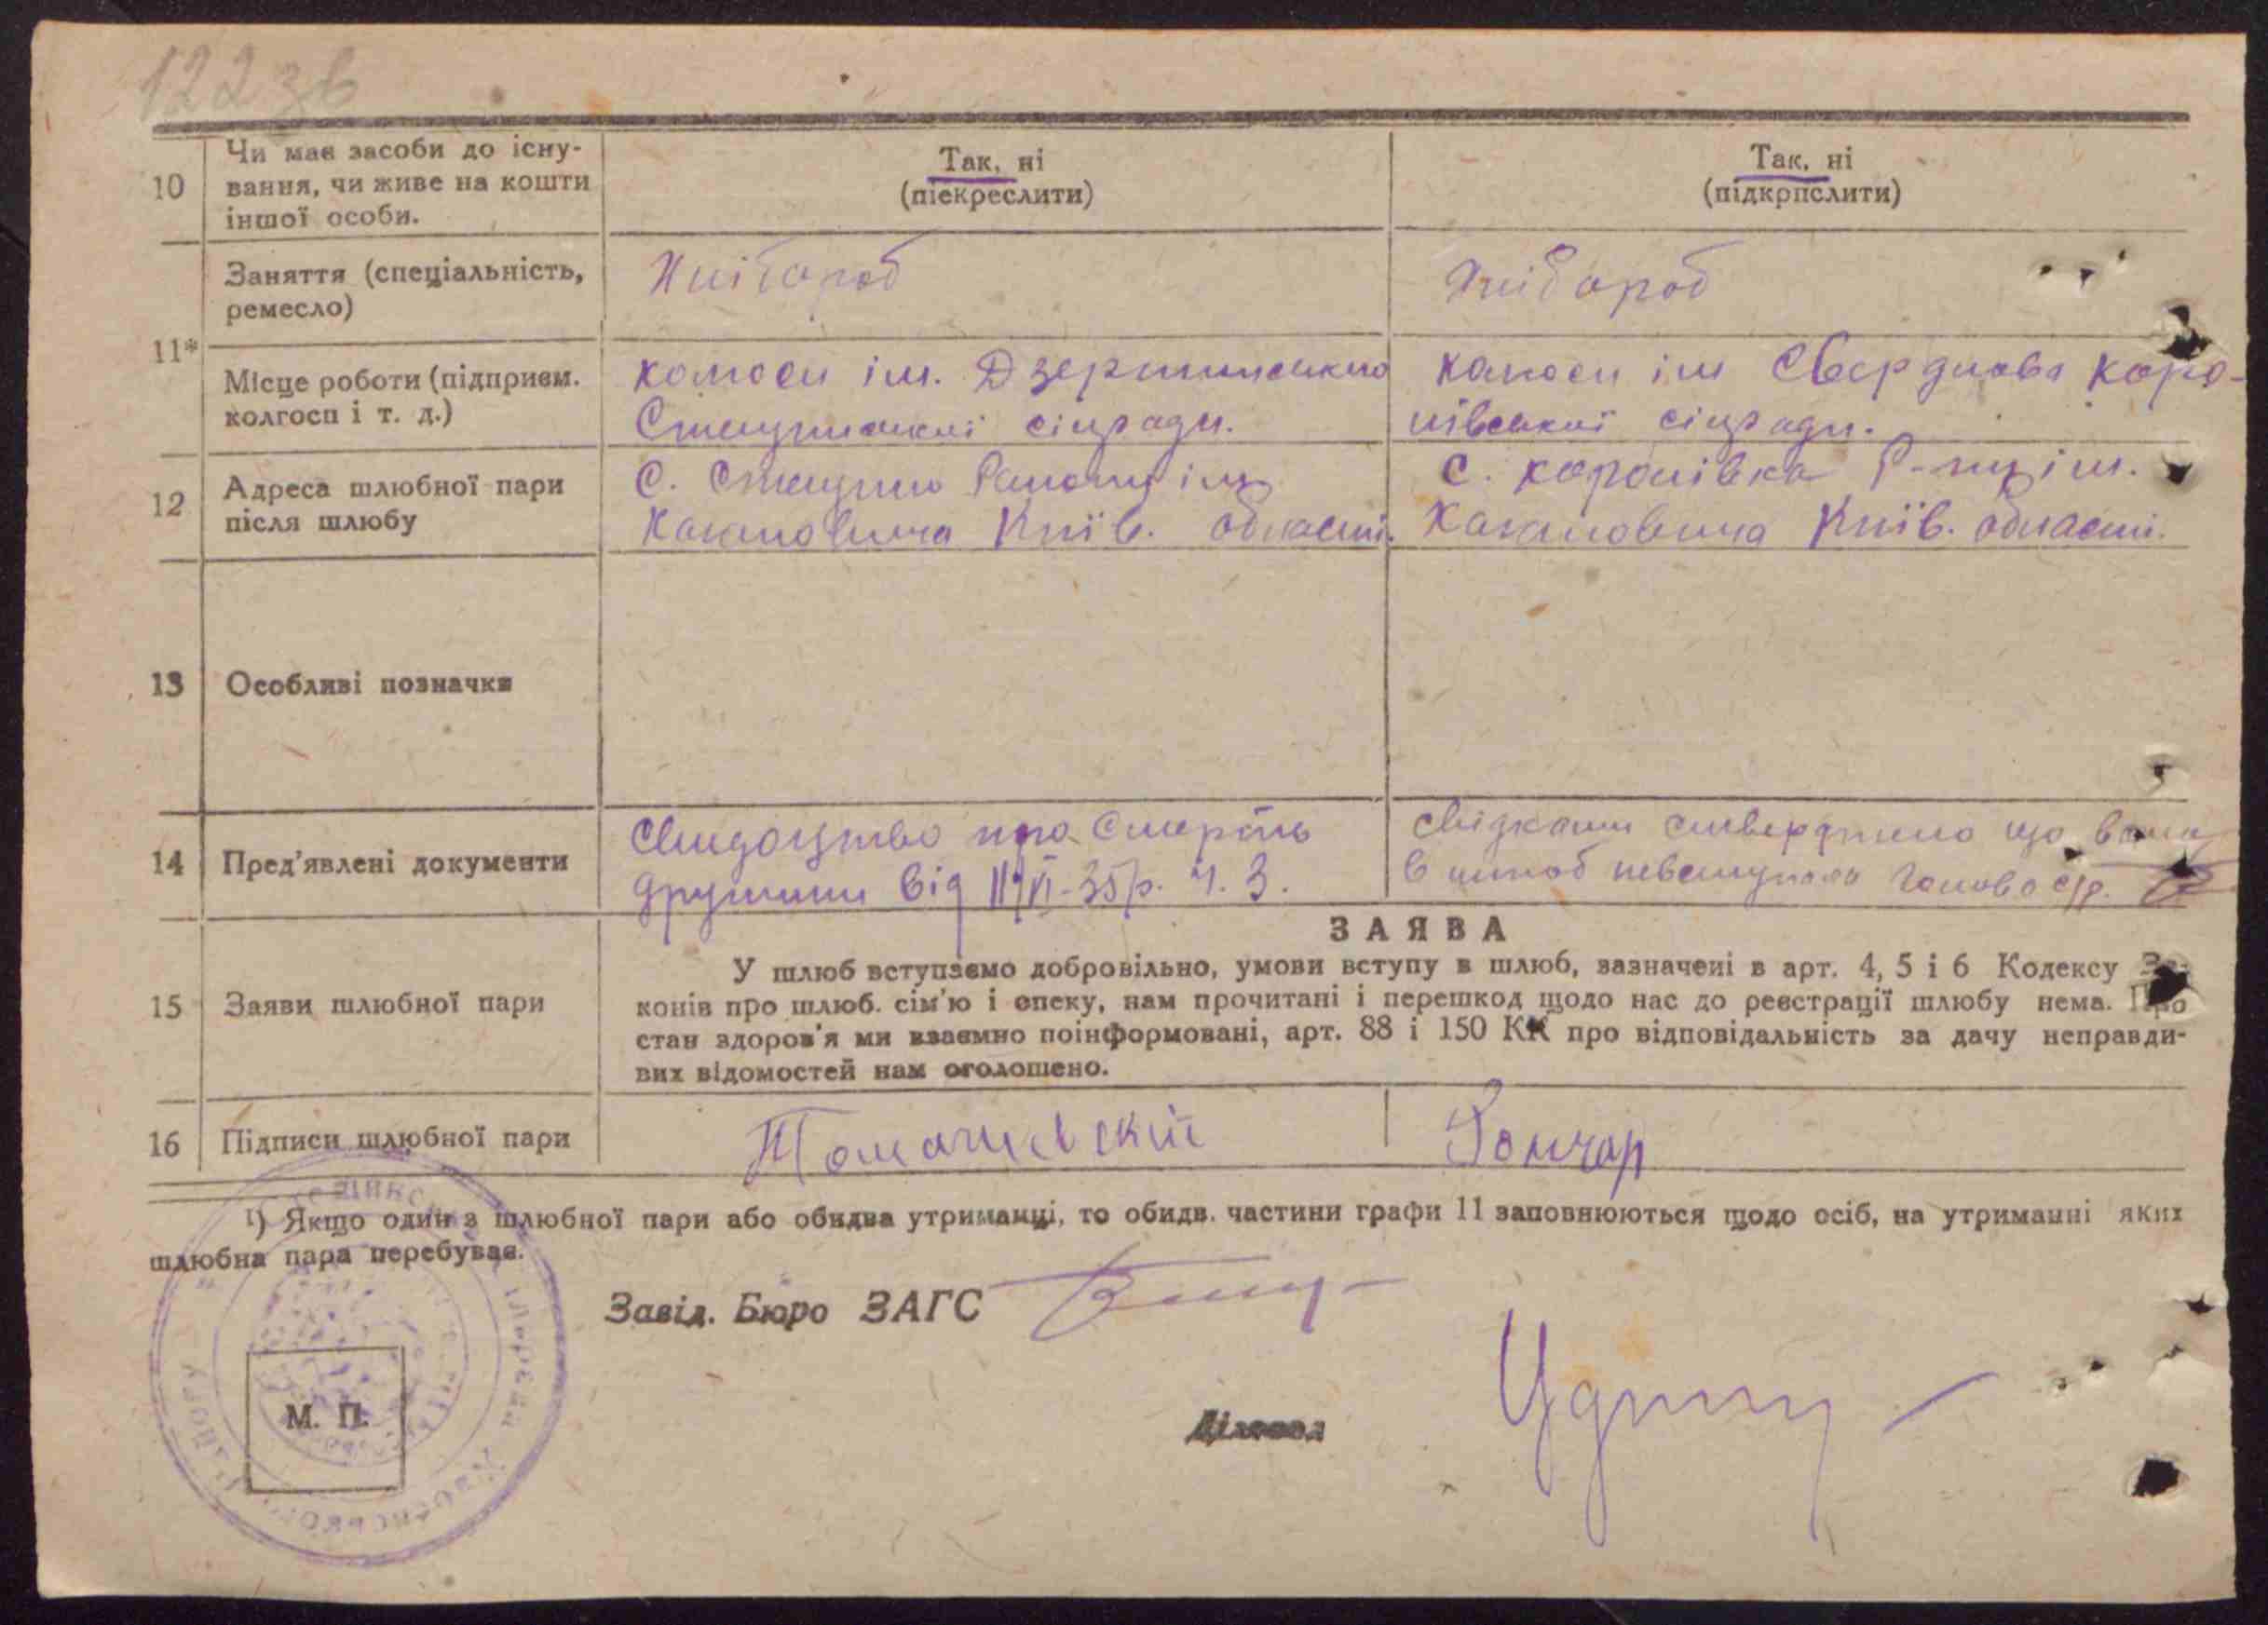 122 зв
10
Чи має засоби до існу-
вання, чи живе на кошти
іншої особи.
Так, ні
(піекреслити)
Так, ні
(підкрпслити)
11*
Заняття (спеціальність,
ремесло)
Хлібороб
Хлібороб
Місце роботи (підприєм.
колгосп і т. д.)
колгосп ім. Дзержинського
сільради.
колгосп ім Свердлова Коро-
лівської сільради.
12
Адреса шлюбної пари
після шлюбу
С. Району ім
Кагановича Київ. області.
С. Королівка Р-ну ім.
Кагановича Київ. області.
13
Особливі позначки
14
Пред'явлені документи
Свидоцтво про Смерть
дружини від 11/VI-35р. Ч. 3.
Свідками стверджино що вона
в шлюб невступала Голова с/р.
15
Заяви шлюбної пари
ЗАЯВА
У шлюб вступаємо добровільно, умови вступу в шлюб, зазначені в арт. 4, 5 і 6 Кодексу За-
конів про шлюб. сім'ю і опеку, нам прочитані і перешкод щодо нас до реєстрації шлюбу нема. Про
стан здоров'я ми взаємно поінформовані, арт. 88 і 150 КК про відповідальність за дачу неправди-
вих відомостей нам оголошено.
16
Підписи шлюбної пари
Томашевский
Гончар
¹) Якщо один з шлюбної пари або обидва утриманці, то обидв. частини графи 11 заповнюються щодо осіб, на утриманні яких
шлюбна пара перебуває.
Завід. Бюро ЗАГС
М. П.
Діловод